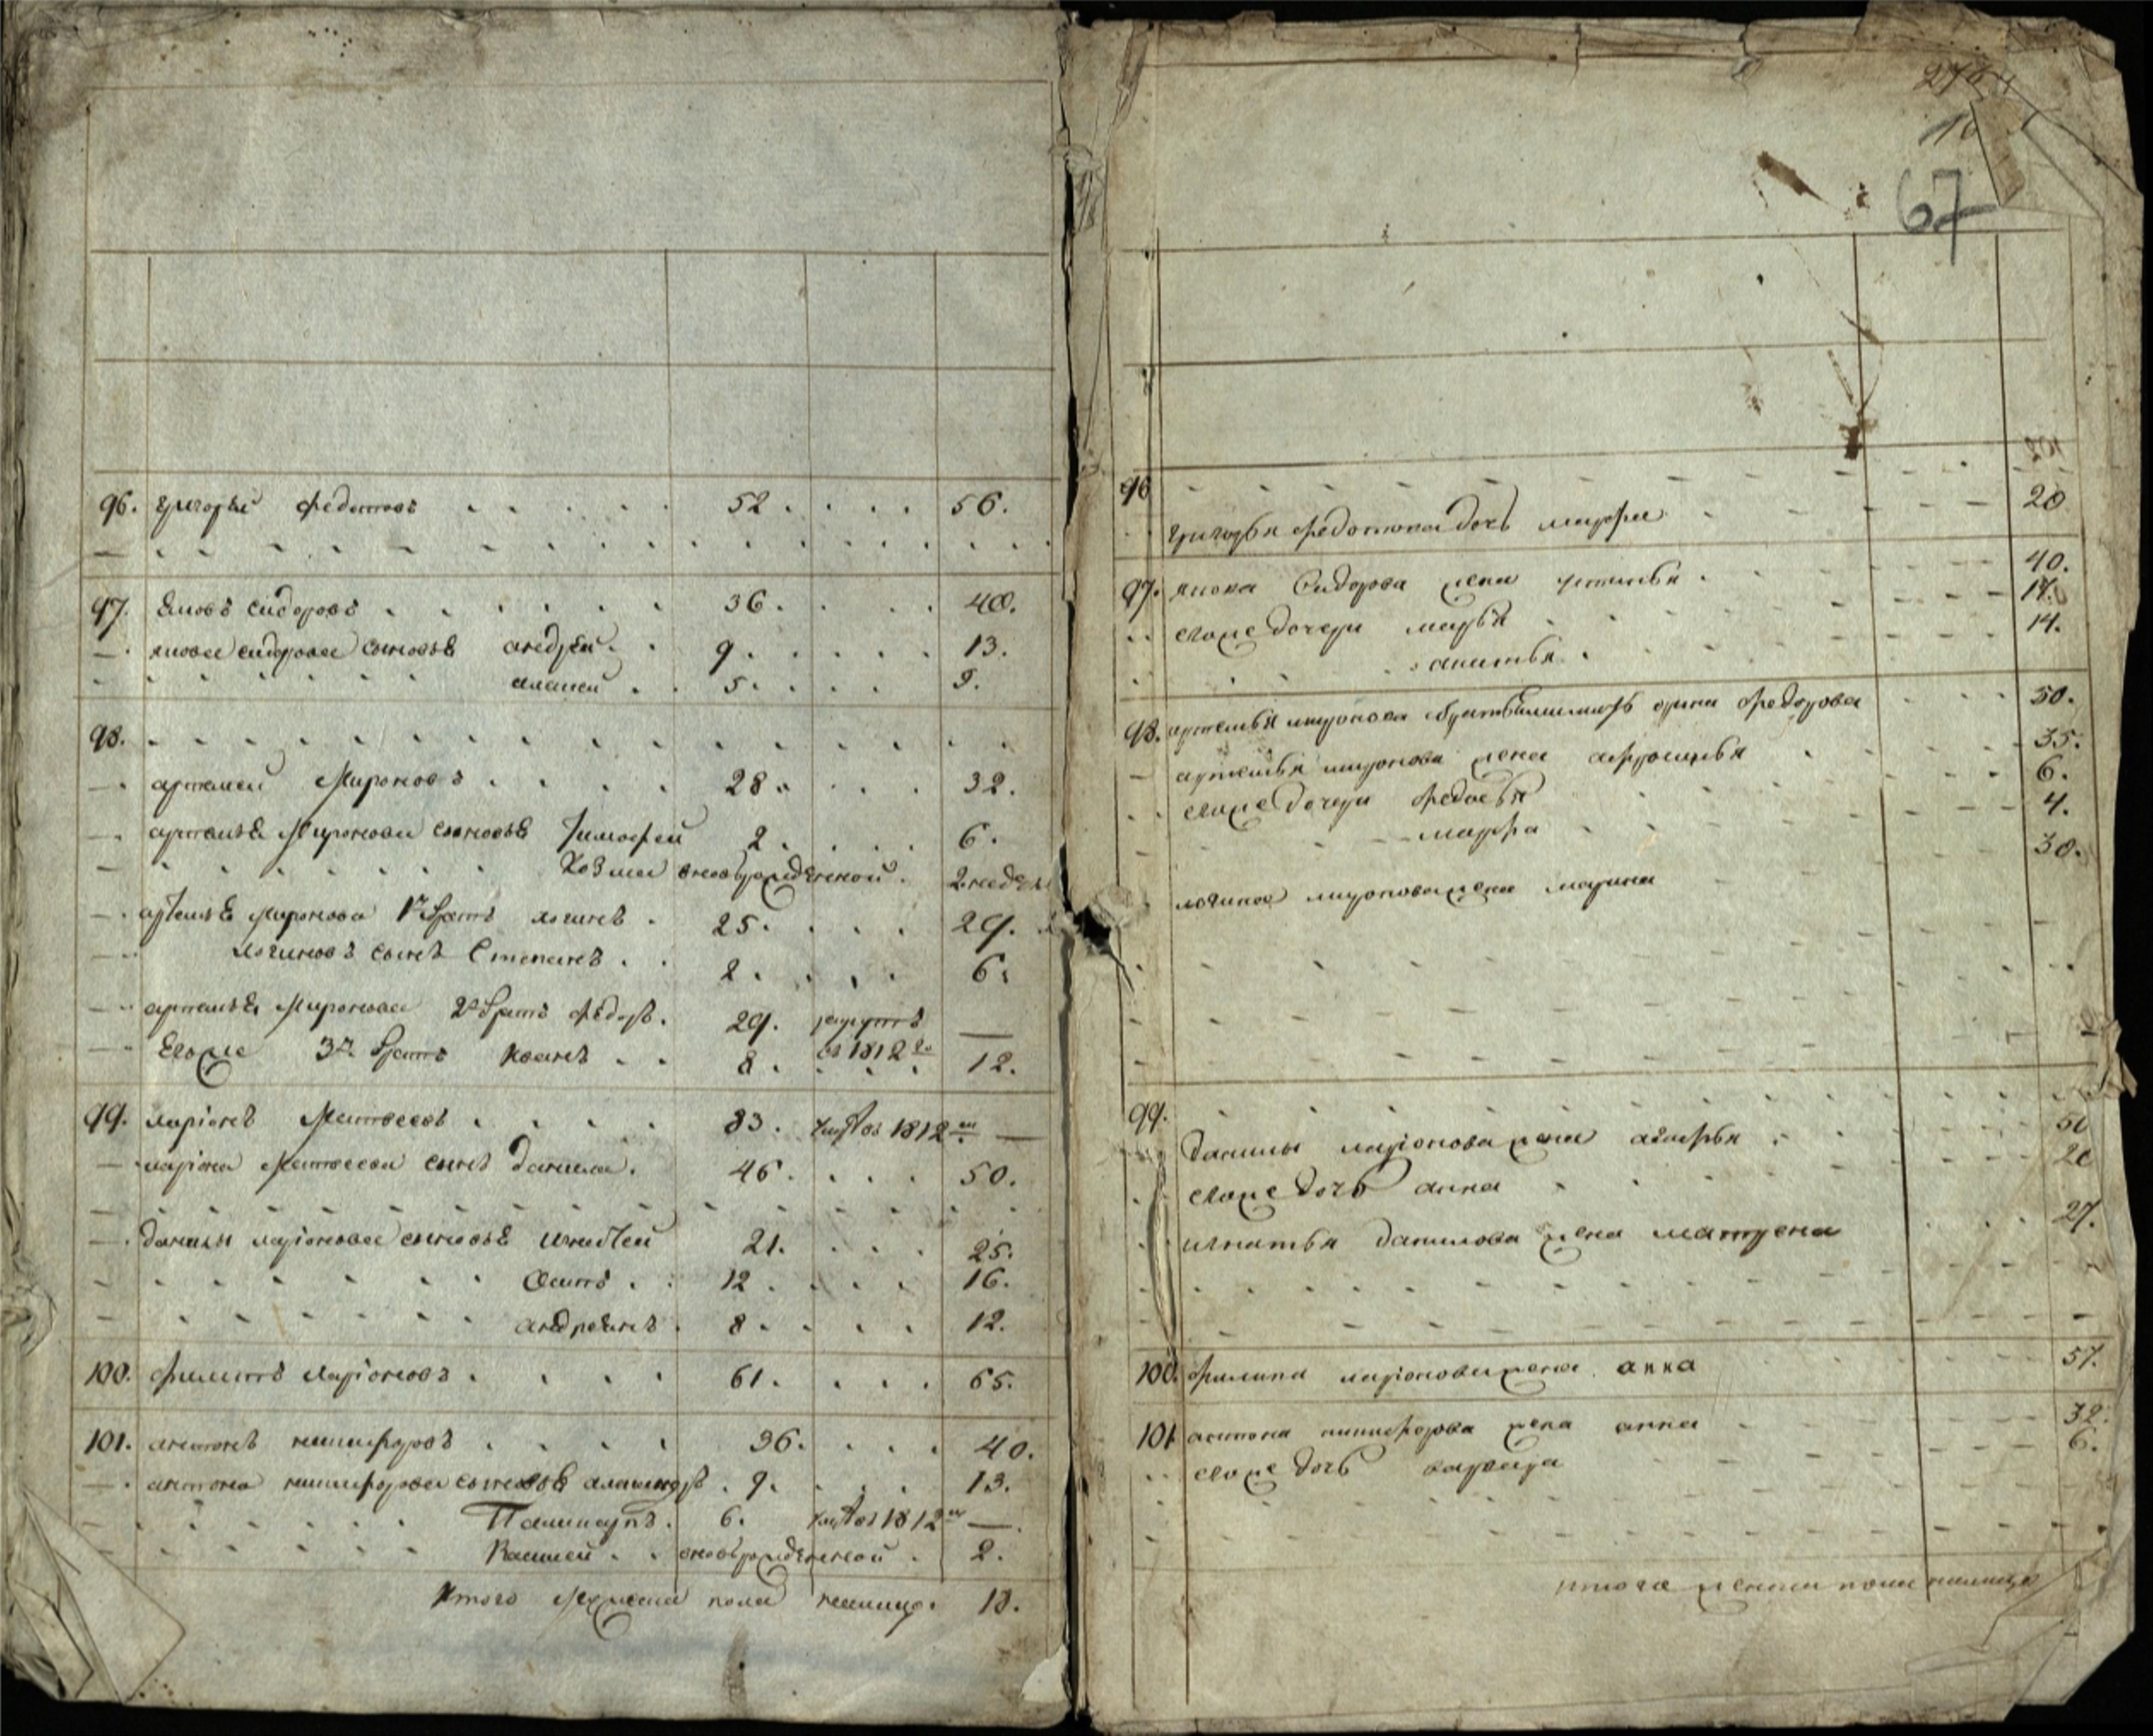 96. григорьи федотовъ 52. 56.
97. Яковъ сидоровъ 36. 40.
якова сидорова сыновья андрей 9. 13.
5. 9.
98.
артемей Мироновъ 28. 32.
артемья Миронова сыновья Тимофей 2. 6.
Козма новорожденной 2 недель
артемья Миронова 1й братъ логинъ 25. 29.
логиновъ сынъ Степанъ 2. 6.
артемья Миронова 2й братъ Федоръ 29. рекрутъ —
въ 1812 го
Егоже 3й братъ Иванъ 8. 12.
99. ларiонъ Матвеевъ 83. въ 1812 м —
ларiона Матвеева сынъ данила 46. 50.
данилы ларiонова сыновья игнатей 21. 25.
Осипъ 12. 16.
андреянъ 8. 12.
100. филипъ ларiоновъ 61. 65.
101. антонъ никифоровъ 36. 40.
антона никифорова сыновья 9. 13.
6. въ 1812 м —
Василей новорожденной 2.
Итого мужеска пола налицо 18.
67
96
григорья федотова дочь марфа 20
97. якова Сидорова жена устинья 40.
егоже дочери марья 17.
14.
98. артемья миронова мать Федорова 50.
артемья миронова жена афросинья 35.
егоже дочери федосья 6.
марфа 4.
логина миронова жена марина 30.
99.
данилы ларiонова жена агафья 50
егоже дочь анна 20
игнатья данилова жена матрена 27.
100. филипа ларiонова жена анна 57.
101 антона никифорова жена анна 32.
егоже дочь варвара 6.
итого женска пола налицо